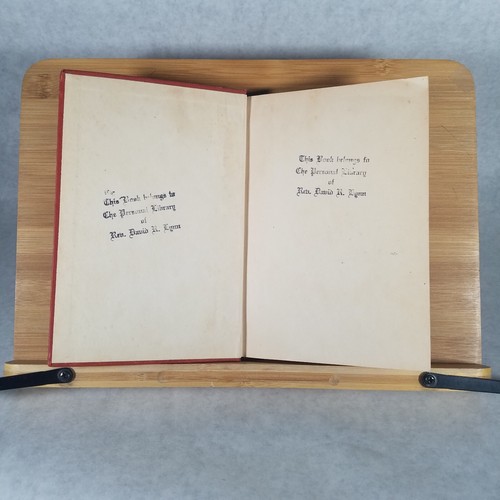 This Book belongs to
The Personal Library
of
Rev. David R. Lynn
This Book belongs to
The Personal Library
of
Rev. David R. Lynn